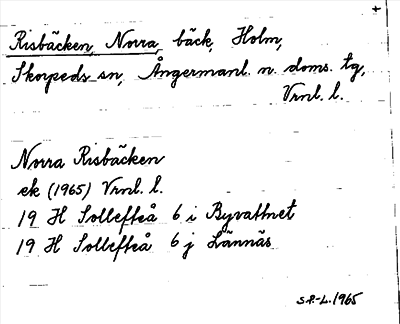 Risbäcken, Norra, bäck, Holm,
Skorpeds sn, Ångermanl. n. doms. tg,
Vrnl. l.
Norra Risbäcken
ek (1965) Vrnl. l.
19 H Sollefteå 6 i Byvattnet
19 H Sollefteå 6 j Lännäs
S.P.-L. 1965